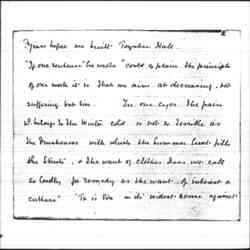 Years before we built Toynbee Hall.
"If one sentence" he wrote "could explain the principle
of our work it is that we aim at decreasing, not
suffering but sin. In our eyes the pain
wh belongs to the Winter cold is not so terrible as
the Drunkenness with which the Summer heat fills
the Streets, & the want of clothes does not call
so loudly for remedy as the want of interest &
culture" "To is live in its widest sense against